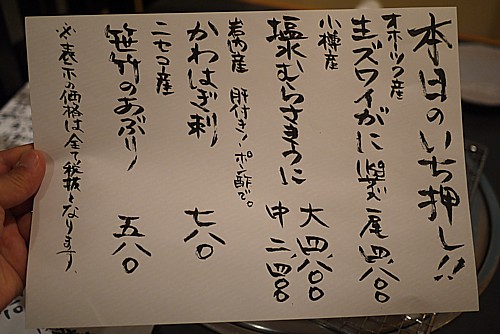 本日のいち押し!!
オホーツク産
生ズワイガニ 一尾 四八〇〇
小樽産
塩水むらさきうに 大 四、八〇〇
中 二、四〇〇
岩内産 肝付き!ポン酢で。
かわはぎ刺 七八〇
ニセコ産
笹竹のあぶり 五八〇
※表示の価格は全て税抜となります。